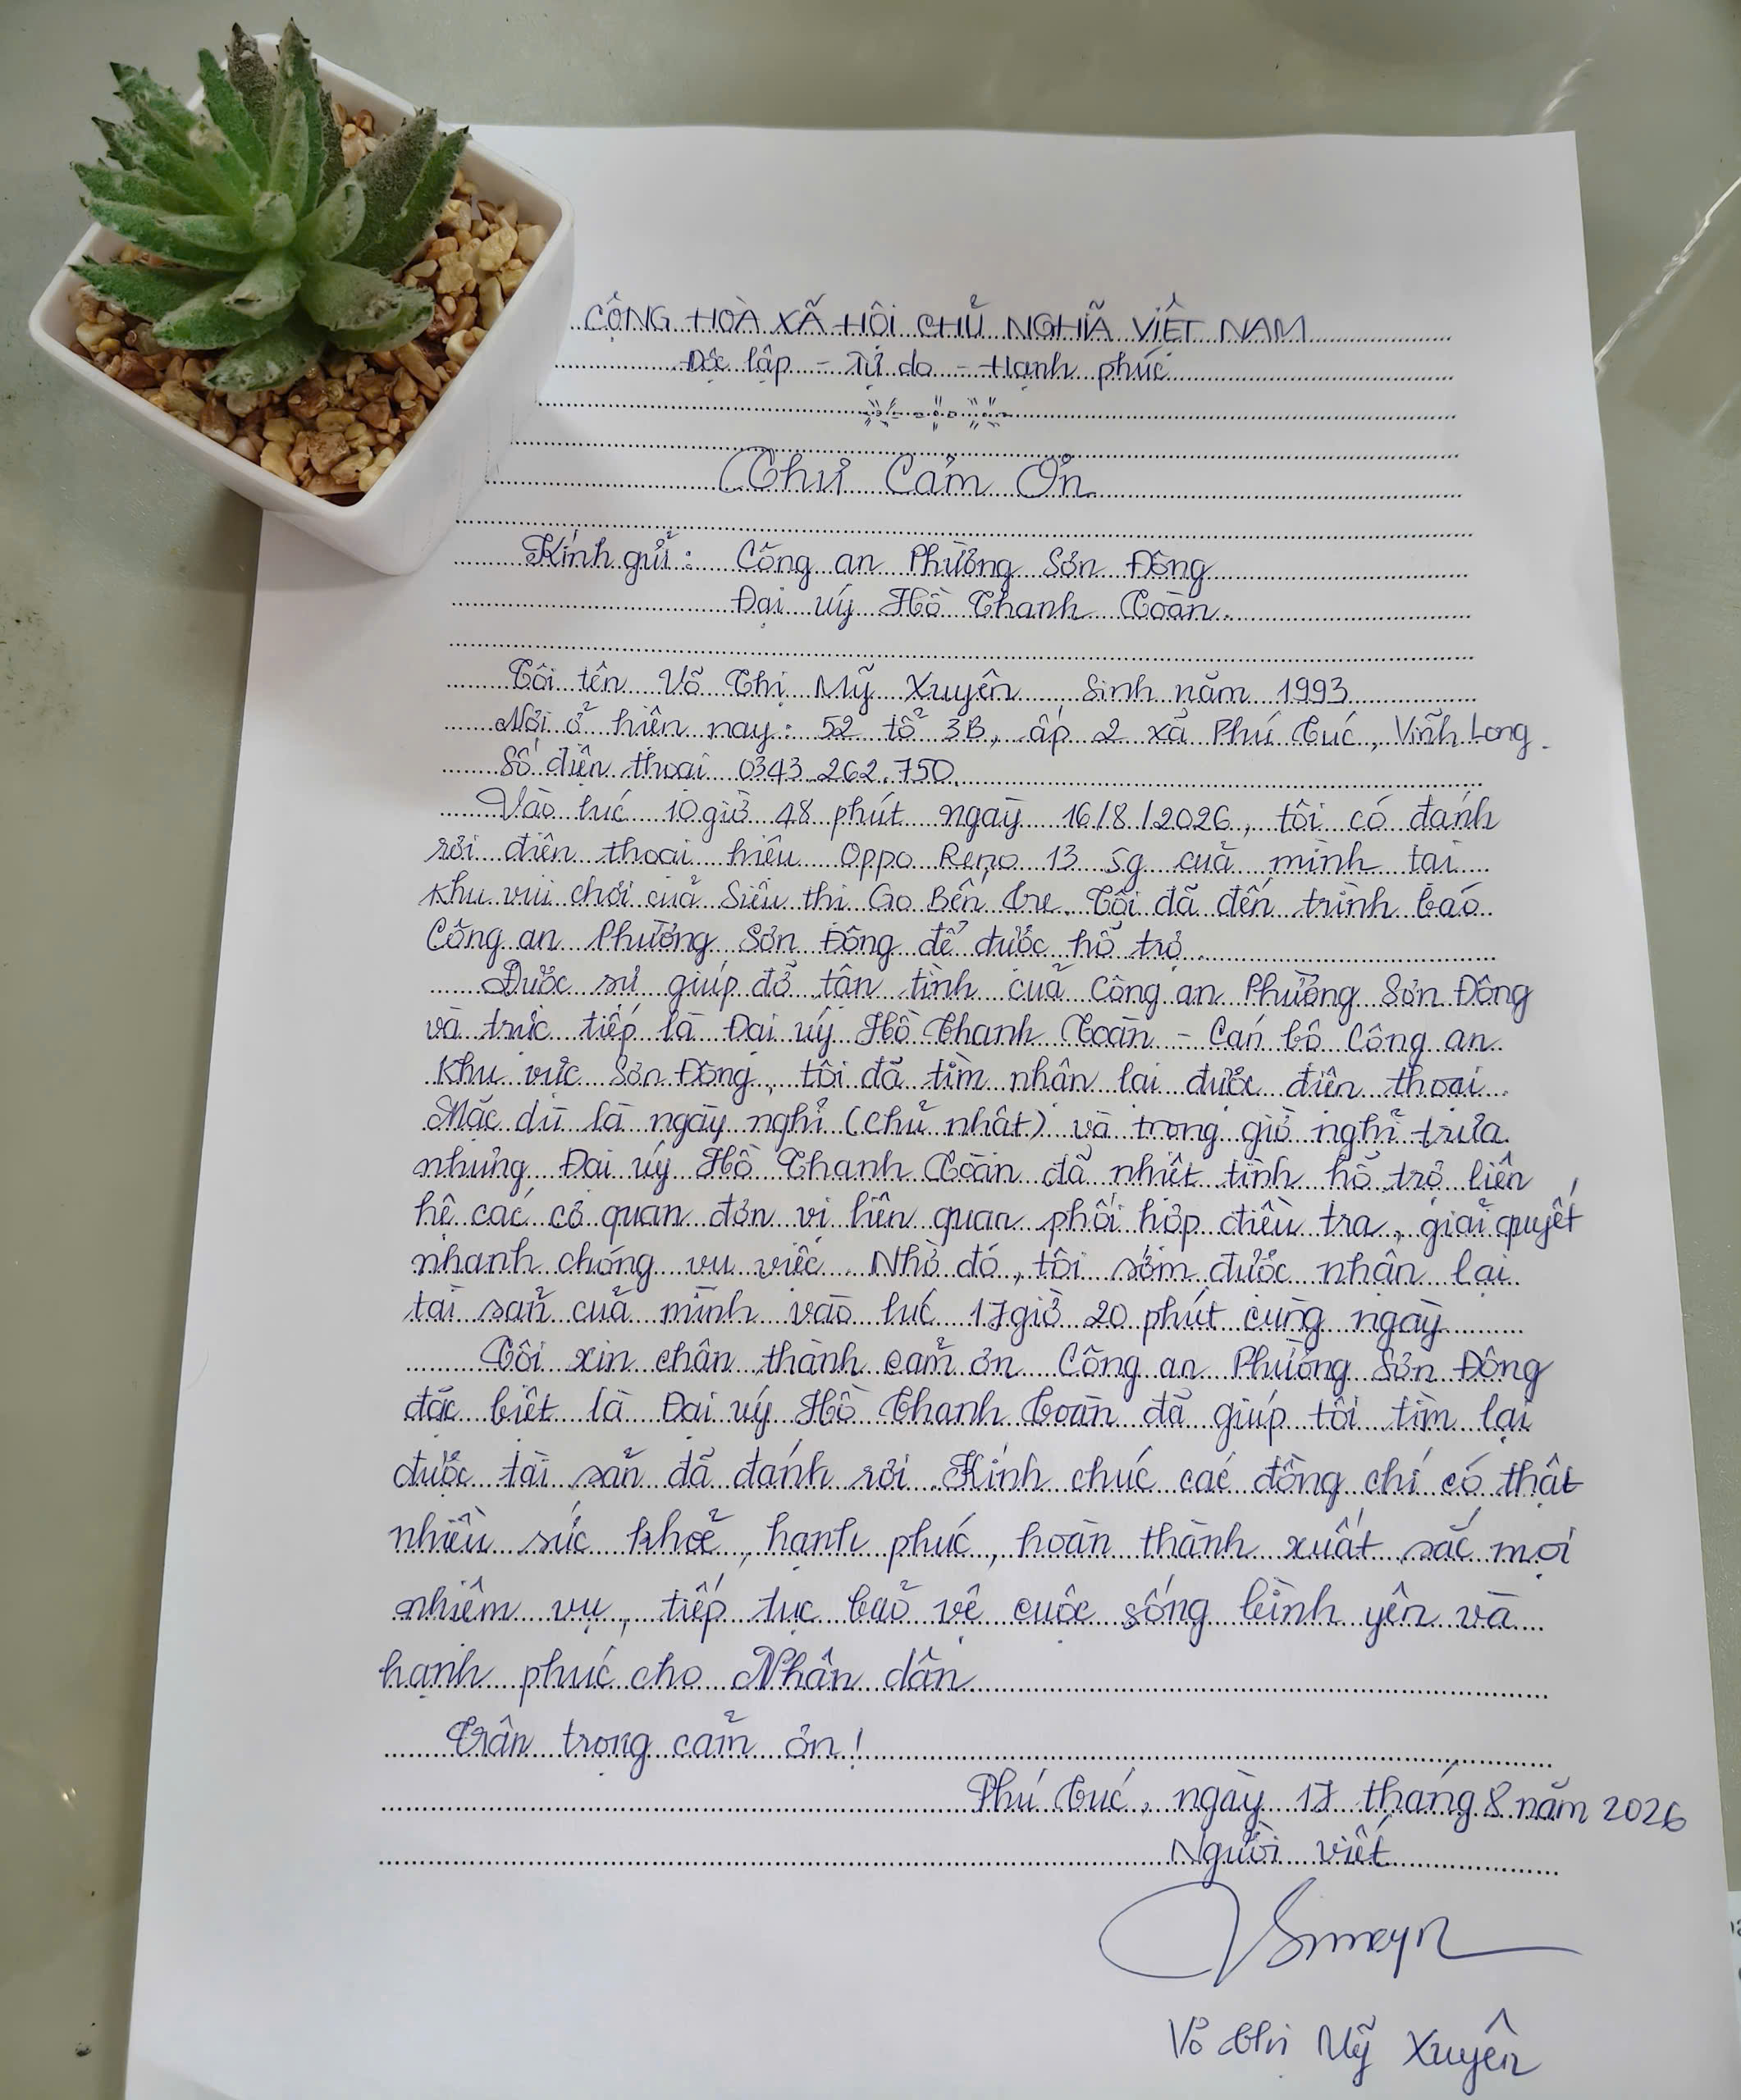 CỘNG HOÀ XÃ HỘI CHỦ NGHĨA VIỆT NAM
Độc lập - Tự do - Hạnh phúc
Thư Cảm Ơn
Kính gửi: Công an Phường Sơn Đông
Đại uý Hồ Thanh Toàn.
Tôi tên Võ Thị Mỹ Xuyên sinh năm 1993
Nơi ở hiện nay: 52 tổ 3B, ấp 2 xã Phú Túc, Vĩnh Long.
Số điện thoại 0343.262.750.
Vào lúc 10 giờ 48 phút ngày 16/8/2026, tôi có đánh
rơi điện thoại hiệu Oppo Reno 13 5g của mình tại
khu vui chơi của Siêu thị Go Bến Tre. Tôi đã đến trình báo
Công an Phường Sơn Đông để được hỗ trợ.
Được sự giúp đỡ tận tình của Công an Phường Sơn Đông
và trực tiếp là Đại uý Hồ Thanh Toàn - Cán bộ Công an
khu vực Sơn Đông, tôi đã tìm nhận lại được điện thoại.
Mặc dù là ngày nghỉ (chủ nhật) và trong giờ nghỉ trưa
nhưng Đại uý Hồ Thanh Toàn đã nhiệt tình hỗ trợ liên
hệ các cơ quan đơn vị liên quan phối hợp điều tra, giải quyết
nhanh chóng vụ việc. Nhờ đó, tôi sớm được nhận lại
tài sản của mình vào lúc 17 giờ 20 phút cùng ngày
Tôi xin chân thành cảm ơn Công an Phường Sơn Đông
đặc biệt là Đại uý Hồ Thanh Toàn đã giúp tôi tìm lại
được tài sản đã đánh rơi. Kính chúc các đồng chí có thật
nhiều sức khoẻ, hạnh phúc, hoàn thành xuất sắc mọi
nhiệm vụ, tiếp tục bảo vệ cuộc sống bình yên và
hạnh phúc cho Nhân dân
Trân trọng cảm ơn!
Phú Túc, ngày 17 tháng 8 năm 2026
Người viết
Võ Thị Mỹ Xuyên